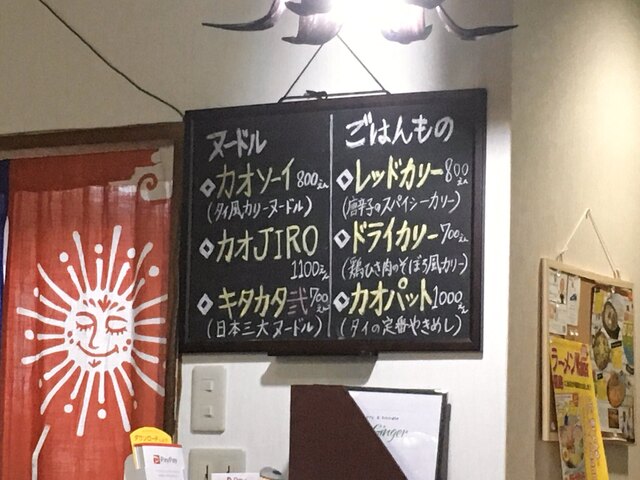 ヌードル
◇カオソーイ800えん
(タイ風カリーヌードル)
◇カオJIRO
1100えん
◇キタカタ弐700えん
(日本三大ヌードル)
ごはんもの
◇レッドカリー800えん
(唐辛子のスパイシーカリー)
◇ドライカリー700えん
(鶏ひき肉のそぼろ風カリー)
◇カオパット1000えん
(タイの定番やきめし)
ラーメン
Ginger
PayPay